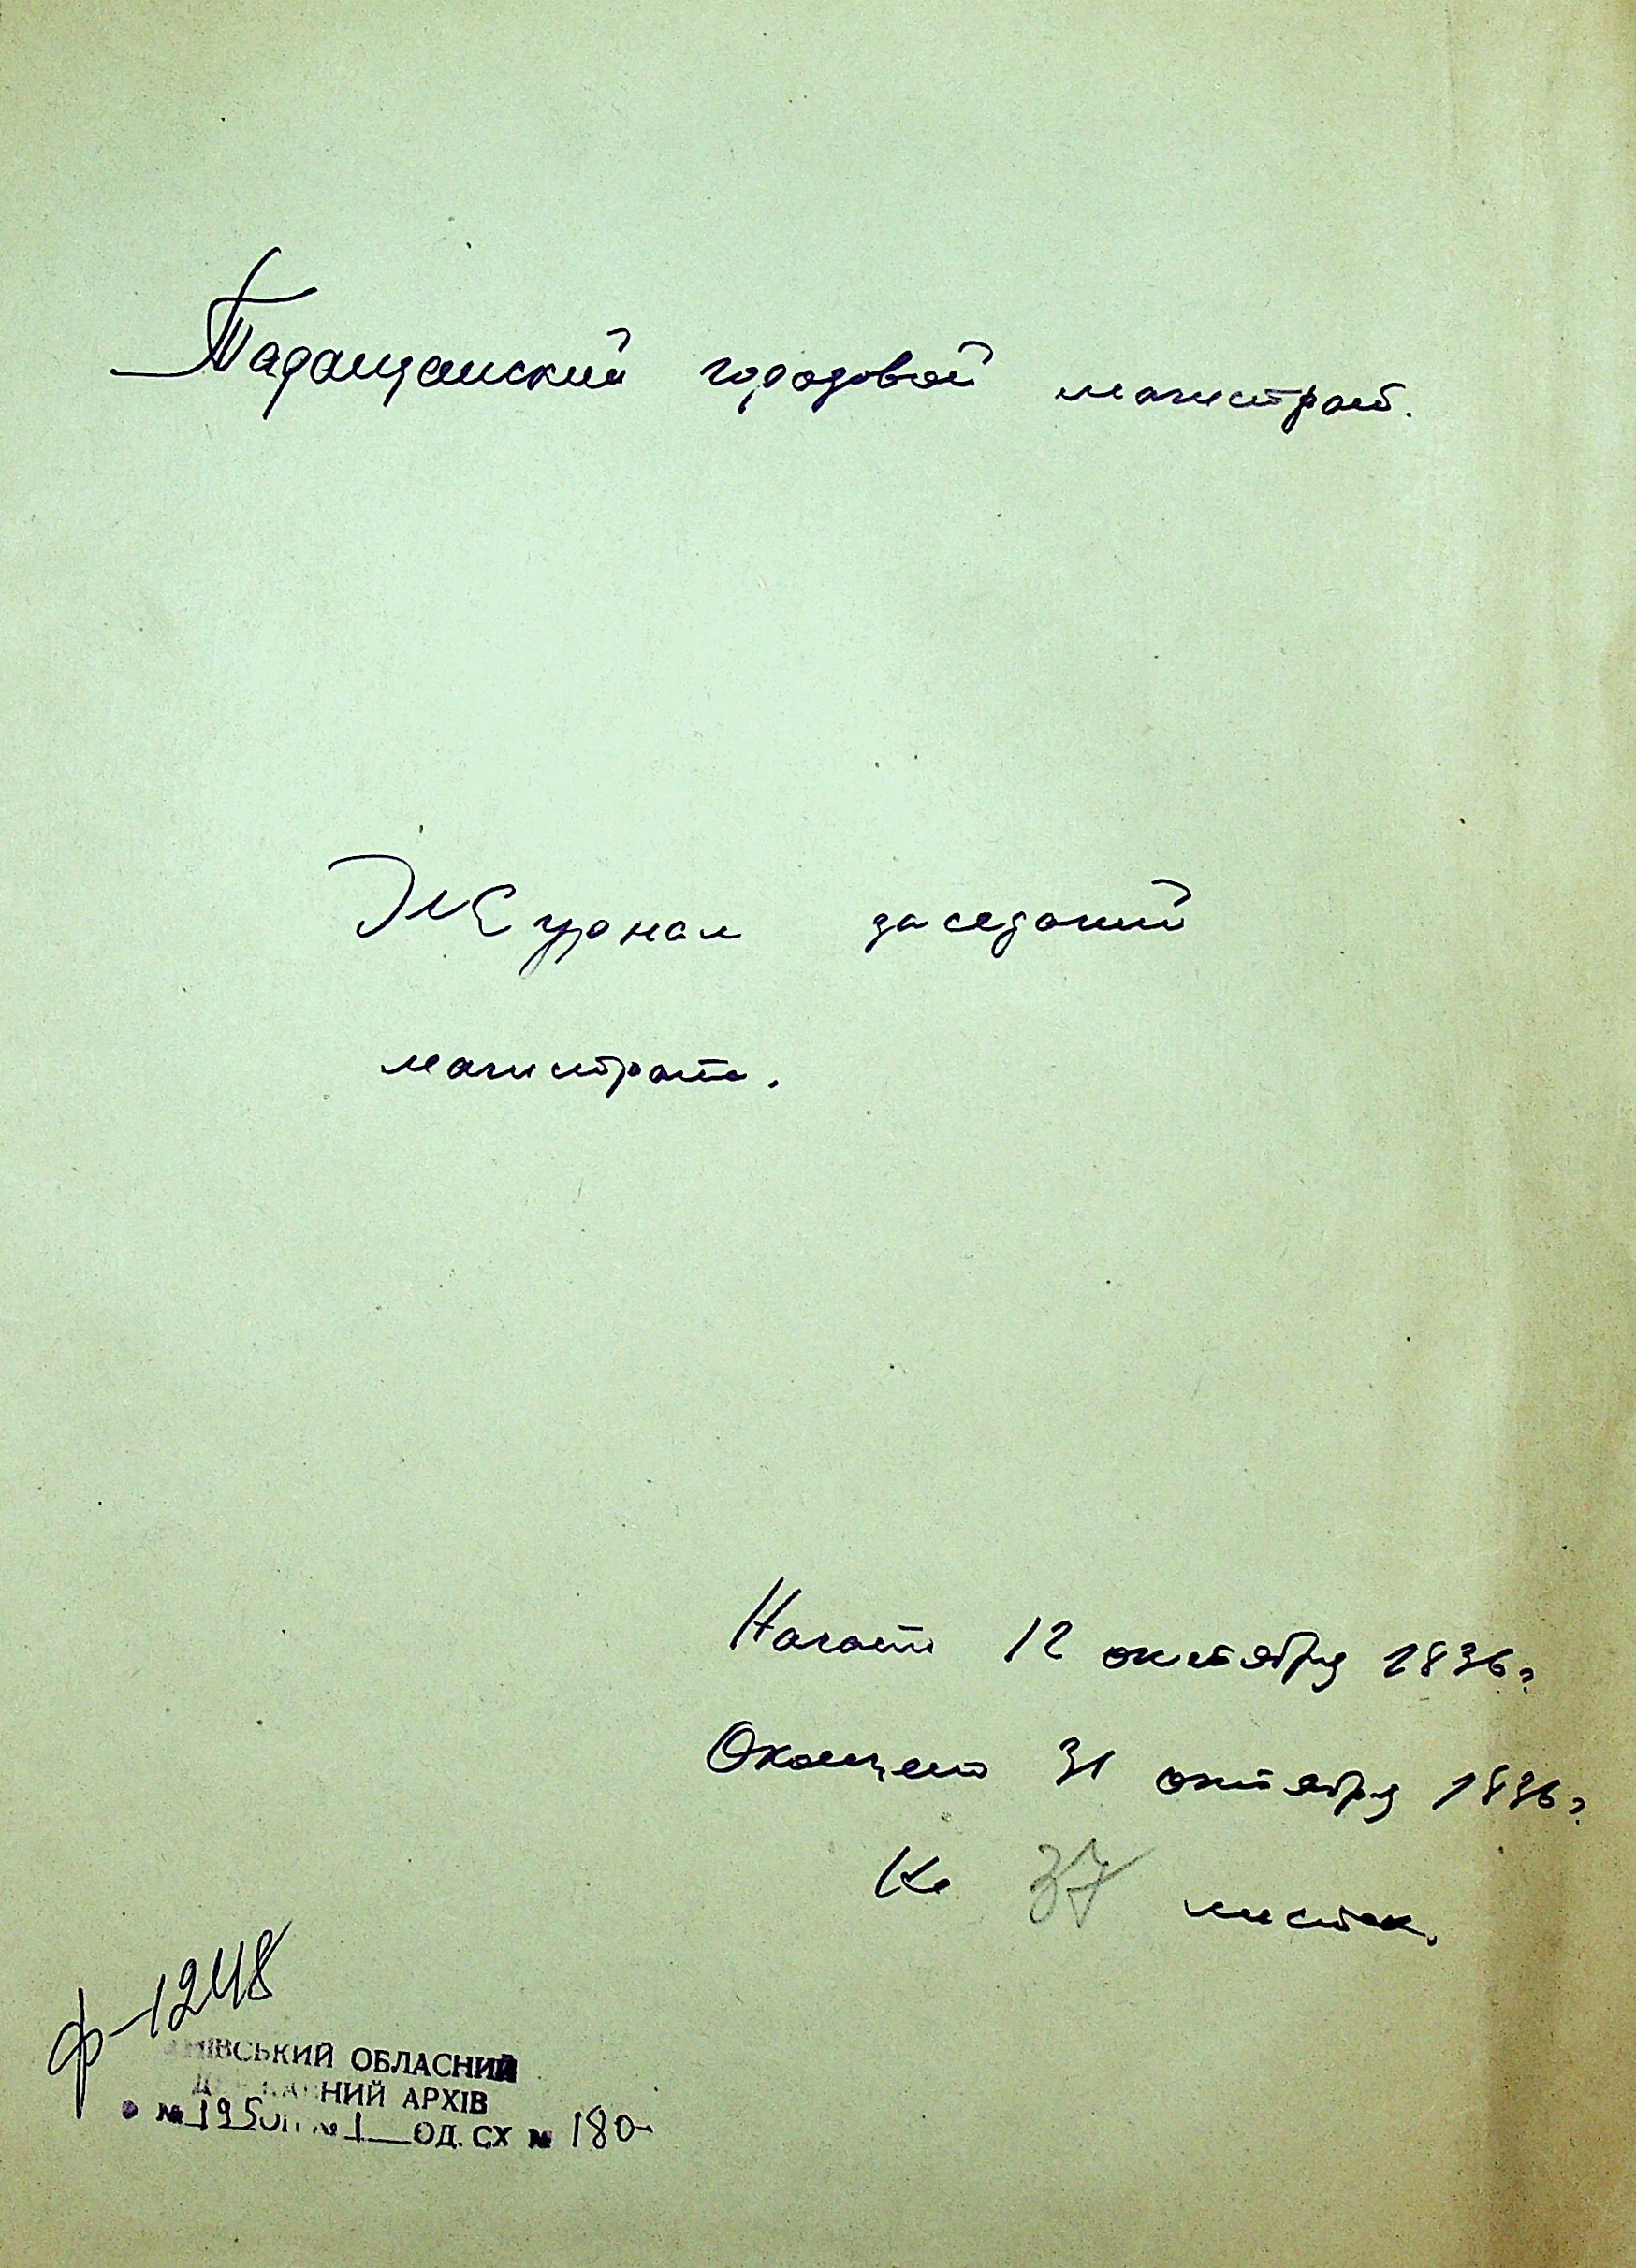 Таращанский городовой магистрат.
Журнал заседаний
магистрата.
Начат 12 октября 1836 г
Окончено 31 октября 1836 г
На 37 листах.
ф-1248
ОБЛАСНИЙ
АРХІВ
№ 195 № 1 ОД. СХ № 180